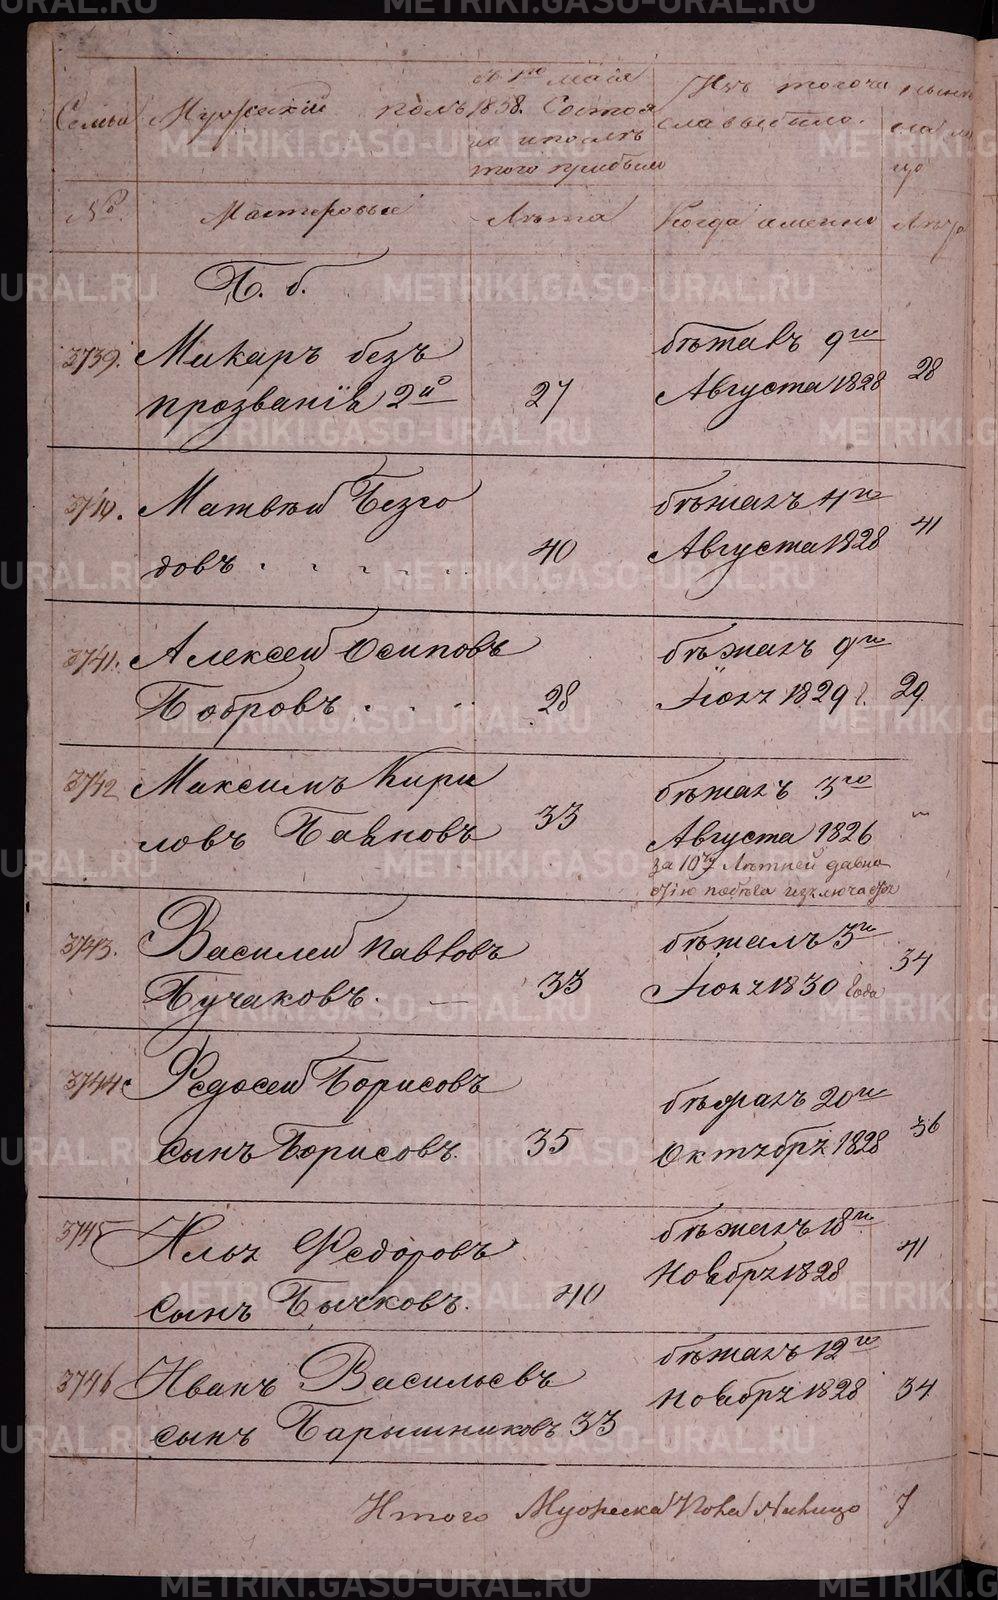 METRIKI.GASO-URAL.RU
Семьи Мужеский полъ
съ 1го Маія
1838. Состоя
ло и послѣ
того прибыло
Изъ того чи
сла выбыло.
нынѣ
на ли
цо
№ Мастеровые Лѣта Когда именно Лѣта
Б. б.
3739. Макаръ безъ
прозванія 2й 27
бѣжавъ 9го
Августа 1828 28
3740. Матвѣй Безго
довъ . . . . . . 40
бѣжалъ 4го
Августа 1828 41
3741. Алексей Осиповъ
Бобровъ . . . . 28
бѣжалъ 9го
Іюля 1829 г. 29
3742 Максимъ Кири
ловъ Баяновъ 33
бѣжалъ 3го
Августа 1826
за 10ти Лѣтней давно
стію побѣга изключается
3743. Василей Павловъ
Бучаковъ. — 33
бѣжалъ 3го
Іюля 1830 года 34
3744. Федосей Борисовъ
сынъ Борисовъ. 35
бѣжалъ 20го
Октября 1828 36
3745 Илья Федоровъ
сынъ Бычковъ. 40
бѣжалъ 18го
Ноября 1828 41
3746 Иванъ Васильевъ
сынъ Барышниковъ 33
бѣжалъ 12го
Ноября 1828 34
Итого Мужеска Пола Налицо 7